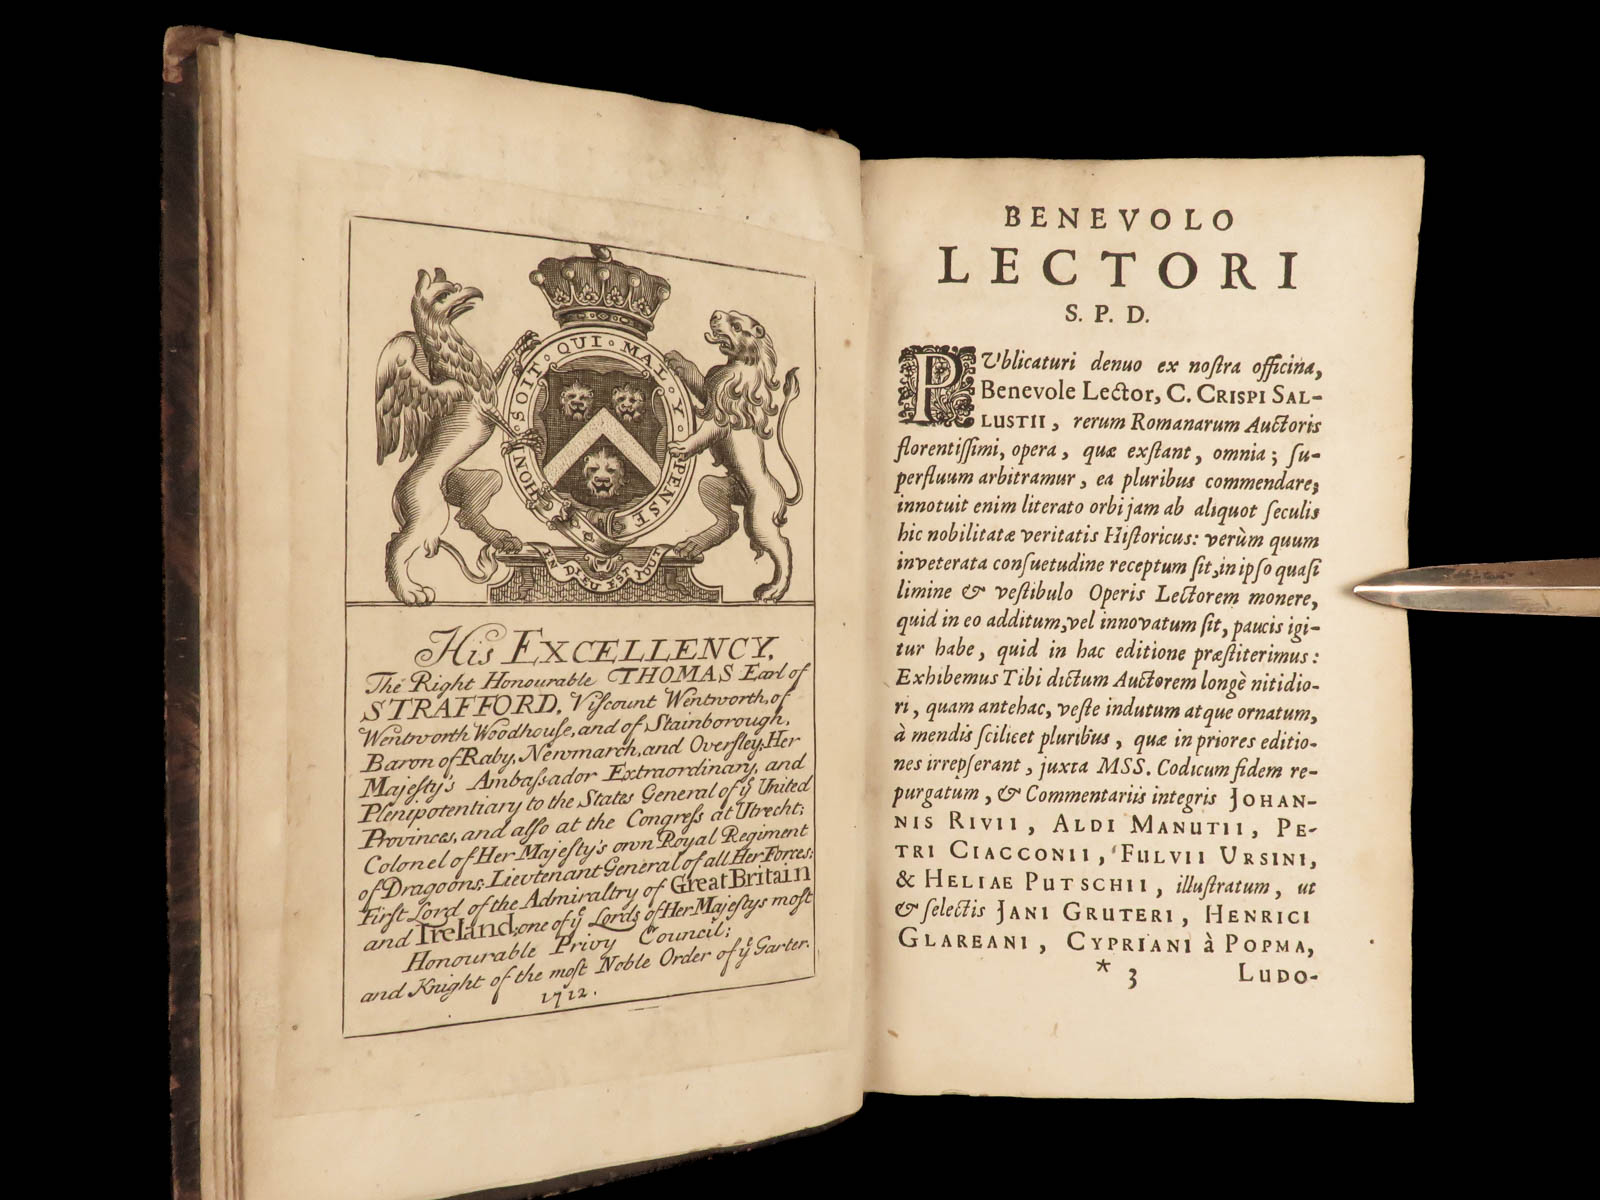 HONI · SOIT · QUI · MAL · Y · PENSE
EN DIEU EST TOUT
His EXCELLENCY,
The Right Honourable THOMAS Earl of
STRAFFORD, Viſcount Wentworth, of
Wentworth Woodhouſe, and of Stainborough,
Baron of Raby, Newmarch, and Overſley, Her
Majeſty's Ambaſsador Extraordinary, and
Plenipotentiary to the States General of yᵉ United
Provinces, and alſo at the Congreſs at Utrecht;
Colonel of Her Majeſty's own Royal Regiment
of Dragoons; Lieutenant General of all Her Forces;
Firſt Lord of the Admiraltry of Great Britain
and Ireland; one of yᵉ Lords of Her Majeſtys moſt
Honourable Privy Council;
and Knight of the moſt Noble Order of yᵉ Garter.
1712.
BENEVOLO
LECTORI
S. P. D.
PUblicaturi denuo ex noſtra officina,
Benevole Lector, C. CRISPI SAL-
LUSTII, rerum Romanarum Auctoris
florentiſſimi, opera, quæ exſtant, omnia; ſu-
perfluum arbitramur, ea pluribus commendare;
innotuit enim literato orbi jam ab aliquot ſeculis
hic nobilitatæ veritatis Hiſtoricus: verùm quum
inveterata conſuetudine receptum ſit, in ipſo quaſi
limine & veſtibulo Operis Lectorem monere,
quid in eo additum, vel innovatum ſit, paucis igi-
tur habe, quid in hac editione præſtiterimus:
Exhibemus Tibi dictum Auctorem longè nitidio-
ri, quam antehac, veſte indutum atque ornatum,
à mendis ſcilicet pluribus, quæ in priores editio-
nes irrepſerant, juxta MSS. Codicum fidem re-
purgatum, & Commentariis integris JOHAN-
NIS RIVII, ALDI MANUTII, PE-
TRI CIACCONII, FULVII URSINI,
& HELIAE PUTSCHII, illuſtratum, ut
& ſelectis JANI GRUTERI, HENRICI
GLAREANI, CYPRIANI à POPMA,
* 3 LUDO-